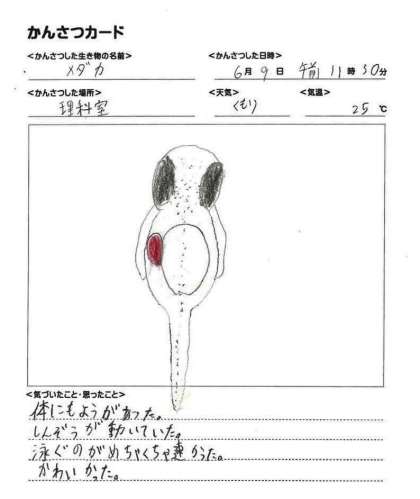 かんさつカード
<かんさつした生き物の名前>
メダカ
<かんさつした日時>
6月9日 午前11時50分
<かんさつした場所>
理科室
<天気>
くもり
<気温>
25℃
<気づいたこと・思ったこと>
体にもようがあった。
しんぞうが動いていた。
泳ぐのがめちゃくちゃ速かった。
かわいかった。